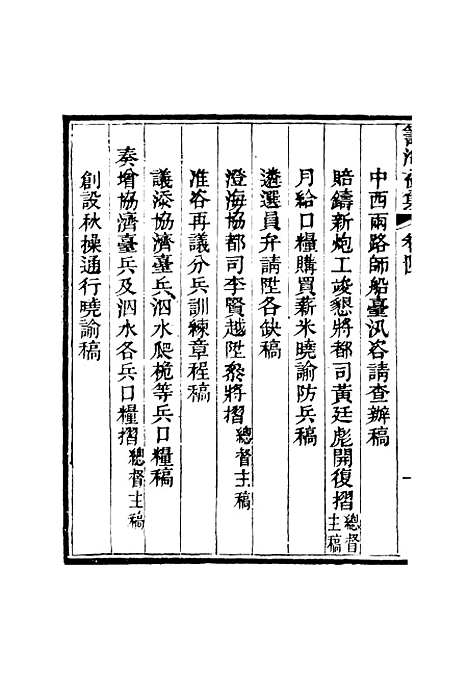 籌海初集 卷四
中西兩路師船臺汛咨請查辦稿
賠鑄新炮工竣懇將都司黃廷彪開復摺 總督主稿
月給口糧購買薪米曉諭防兵稿
遴選員弁請陞各缺稿
澄海協都司李賢越陞叅將摺 總督主稿
准咨再議分兵訓練章程稿
議添協濟臺兵泅水爬桅等兵口糧稿
奏增協濟臺兵及泅水各兵口糧摺 總督主稿
創設秋操通行曉諭稿
一